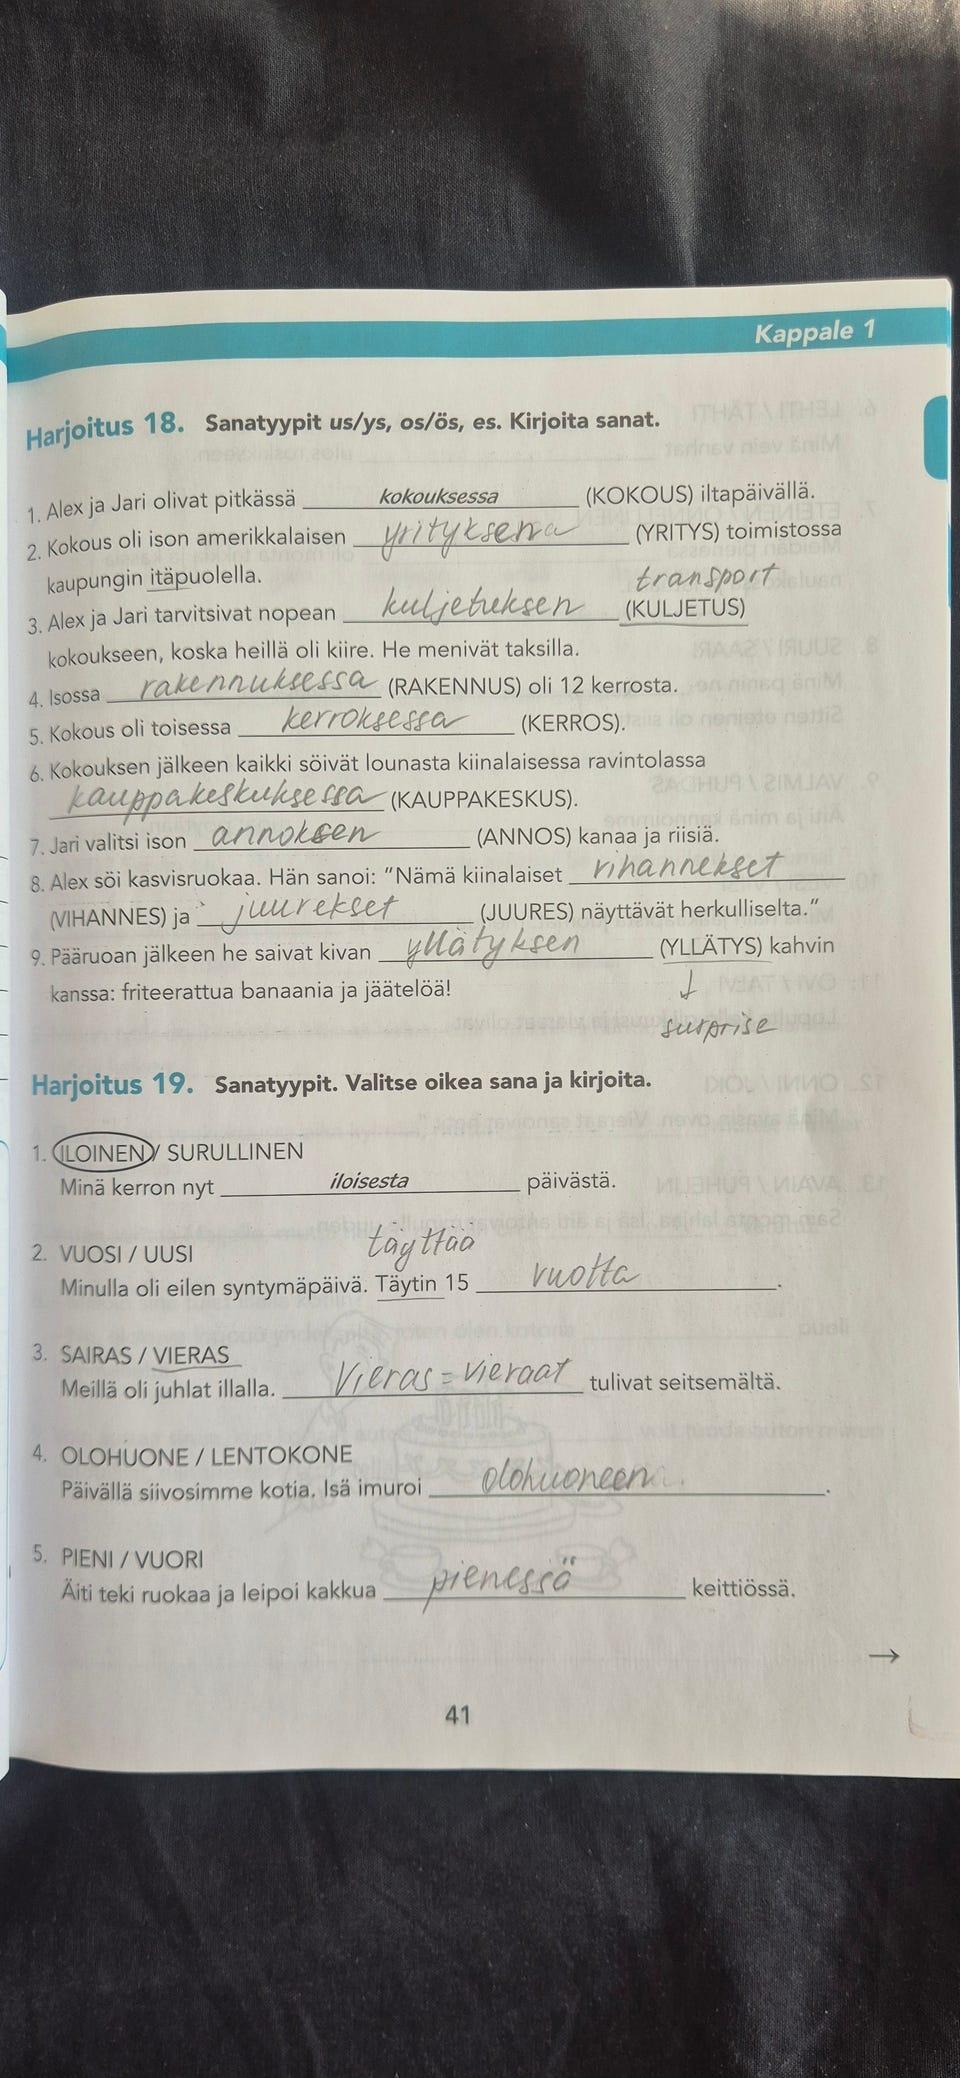 Kappale 1
Harjoitus 18. Sanatyypit us/ys, os/ös, es. Kirjoita sanat.
1. Alex ja Jari olivat pitkässä kokouksessa (KOKOUS) iltapäivällä.
2. Kokous oli ison amerikkalaisen (YRITYS) toimistossa
kaupungin itäpuolella.
transport
3. Alex ja Jari tarvitsivat nopean kuljetuksen (KULJETUS)
kokoukseen, koska heillä oli kiire. He menivät taksilla.
4. Isossa rakennuksessa (RAKENNUS) oli 12 kerrosta.
5. Kokous oli toisessa kerroksessa (KERROS).
6. Kokouksen jälkeen kaikki söivät lounasta kiinalaisessa ravintolassa
kauppakeskuksessa (KAUPPAKESKUS).
7. Jari valitsi ison annoksen (ANNOS) kanaa ja riisiä.
8. Alex söi kasvisruokaa. Hän sanoi: "Nämä kiinalaiset vihannekset
(VIHANNES) ja juurekset (JUURES) näyttävät herkulliselta."
9. Pääruoan jälkeen he saivat kivan yllätyksen (YLLÄTYS) kahvin
kanssa: friteerattua banaania ja jäätelöä!
surprise
Harjoitus 19. Sanatyypit. Valitse oikea sana ja kirjoita.
1. ILOINEN / SURULLINEN
Minä kerron nyt iloisesta päivästä.
2. VUOSI / UUSI
täyttää
Minulla oli eilen syntymäpäivä. Täytin 15 vuotta.
3. SAIRAS / VIERAS
Meillä oli juhlat illalla. Vieras = vieraat tulivat seitsemältä.
4. OLOHUONE / LENTOKONE
Päivällä siivosimme kotia. Isä imuroi olohuoneen.
5. PIENI / VUORI
Äiti teki ruokaa ja leipoi kakkua pienessä keittiössä.
→
41